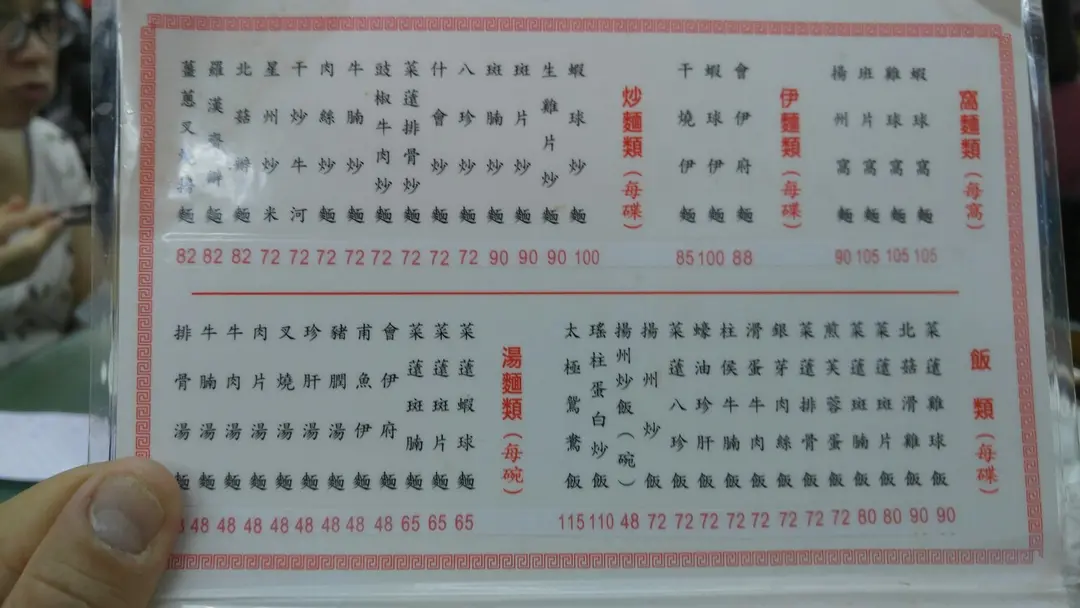 窩麵類(每窩)
蝦球窩麵
105
雞球窩麵
105
班片窩麵
105
揚州窩麵
90
伊麵類(每碟)
會伊府麵
88
蝦球伊麵
100
干燒伊麵
85
炒麵類(每碟)
蝦球炒麵
100
生雞片炒麵
90
斑片炒麵
90
斑腩炒麵
90
八珍炒麵
72
什會炒麵
72
菜薳排骨炒麵
72
豉椒牛肉炒麵
72
牛腩炒麵
72
肉絲炒麵
72
干炒牛河
72
星州炒米
72
北菇辦麵
82
羅漢齋辦麵
82
薑蔥叉麵
82
飯類(每碟)
菜薳雞球飯
90
北菇滑雞飯
90
菜薳斑片飯
80
菜薳斑腩飯
80
煎芙蓉蛋飯
72
菜薳排骨飯
72
銀芽肉絲飯
72
滑蛋牛肉飯
72
柱侯牛腩飯
72
蠔油珍肝飯
72
菜薳八珍飯
72
揚州炒飯
72
揚州炒飯(碗)
48
瑤柱蛋白炒飯
110
太極鴛鴦飯
115
湯麵類(每碗)
菜薳蝦球麵
65
菜薳斑片麵
65
菜薳斑腩麵
65
會伊府麵
48
甫魚伊麵
48
豬膶湯麵
48
珍肝湯麵
48
叉燒湯麵
48
肉片湯麵
48
牛肉湯麵
48
牛腩湯麵
48
排骨湯麵